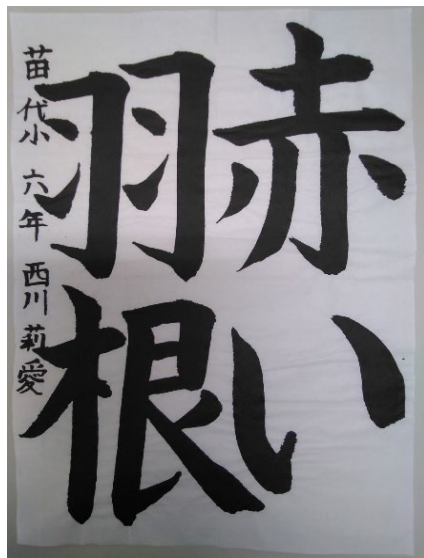 赤い
羽根
苗代小 六年 西川莉愛